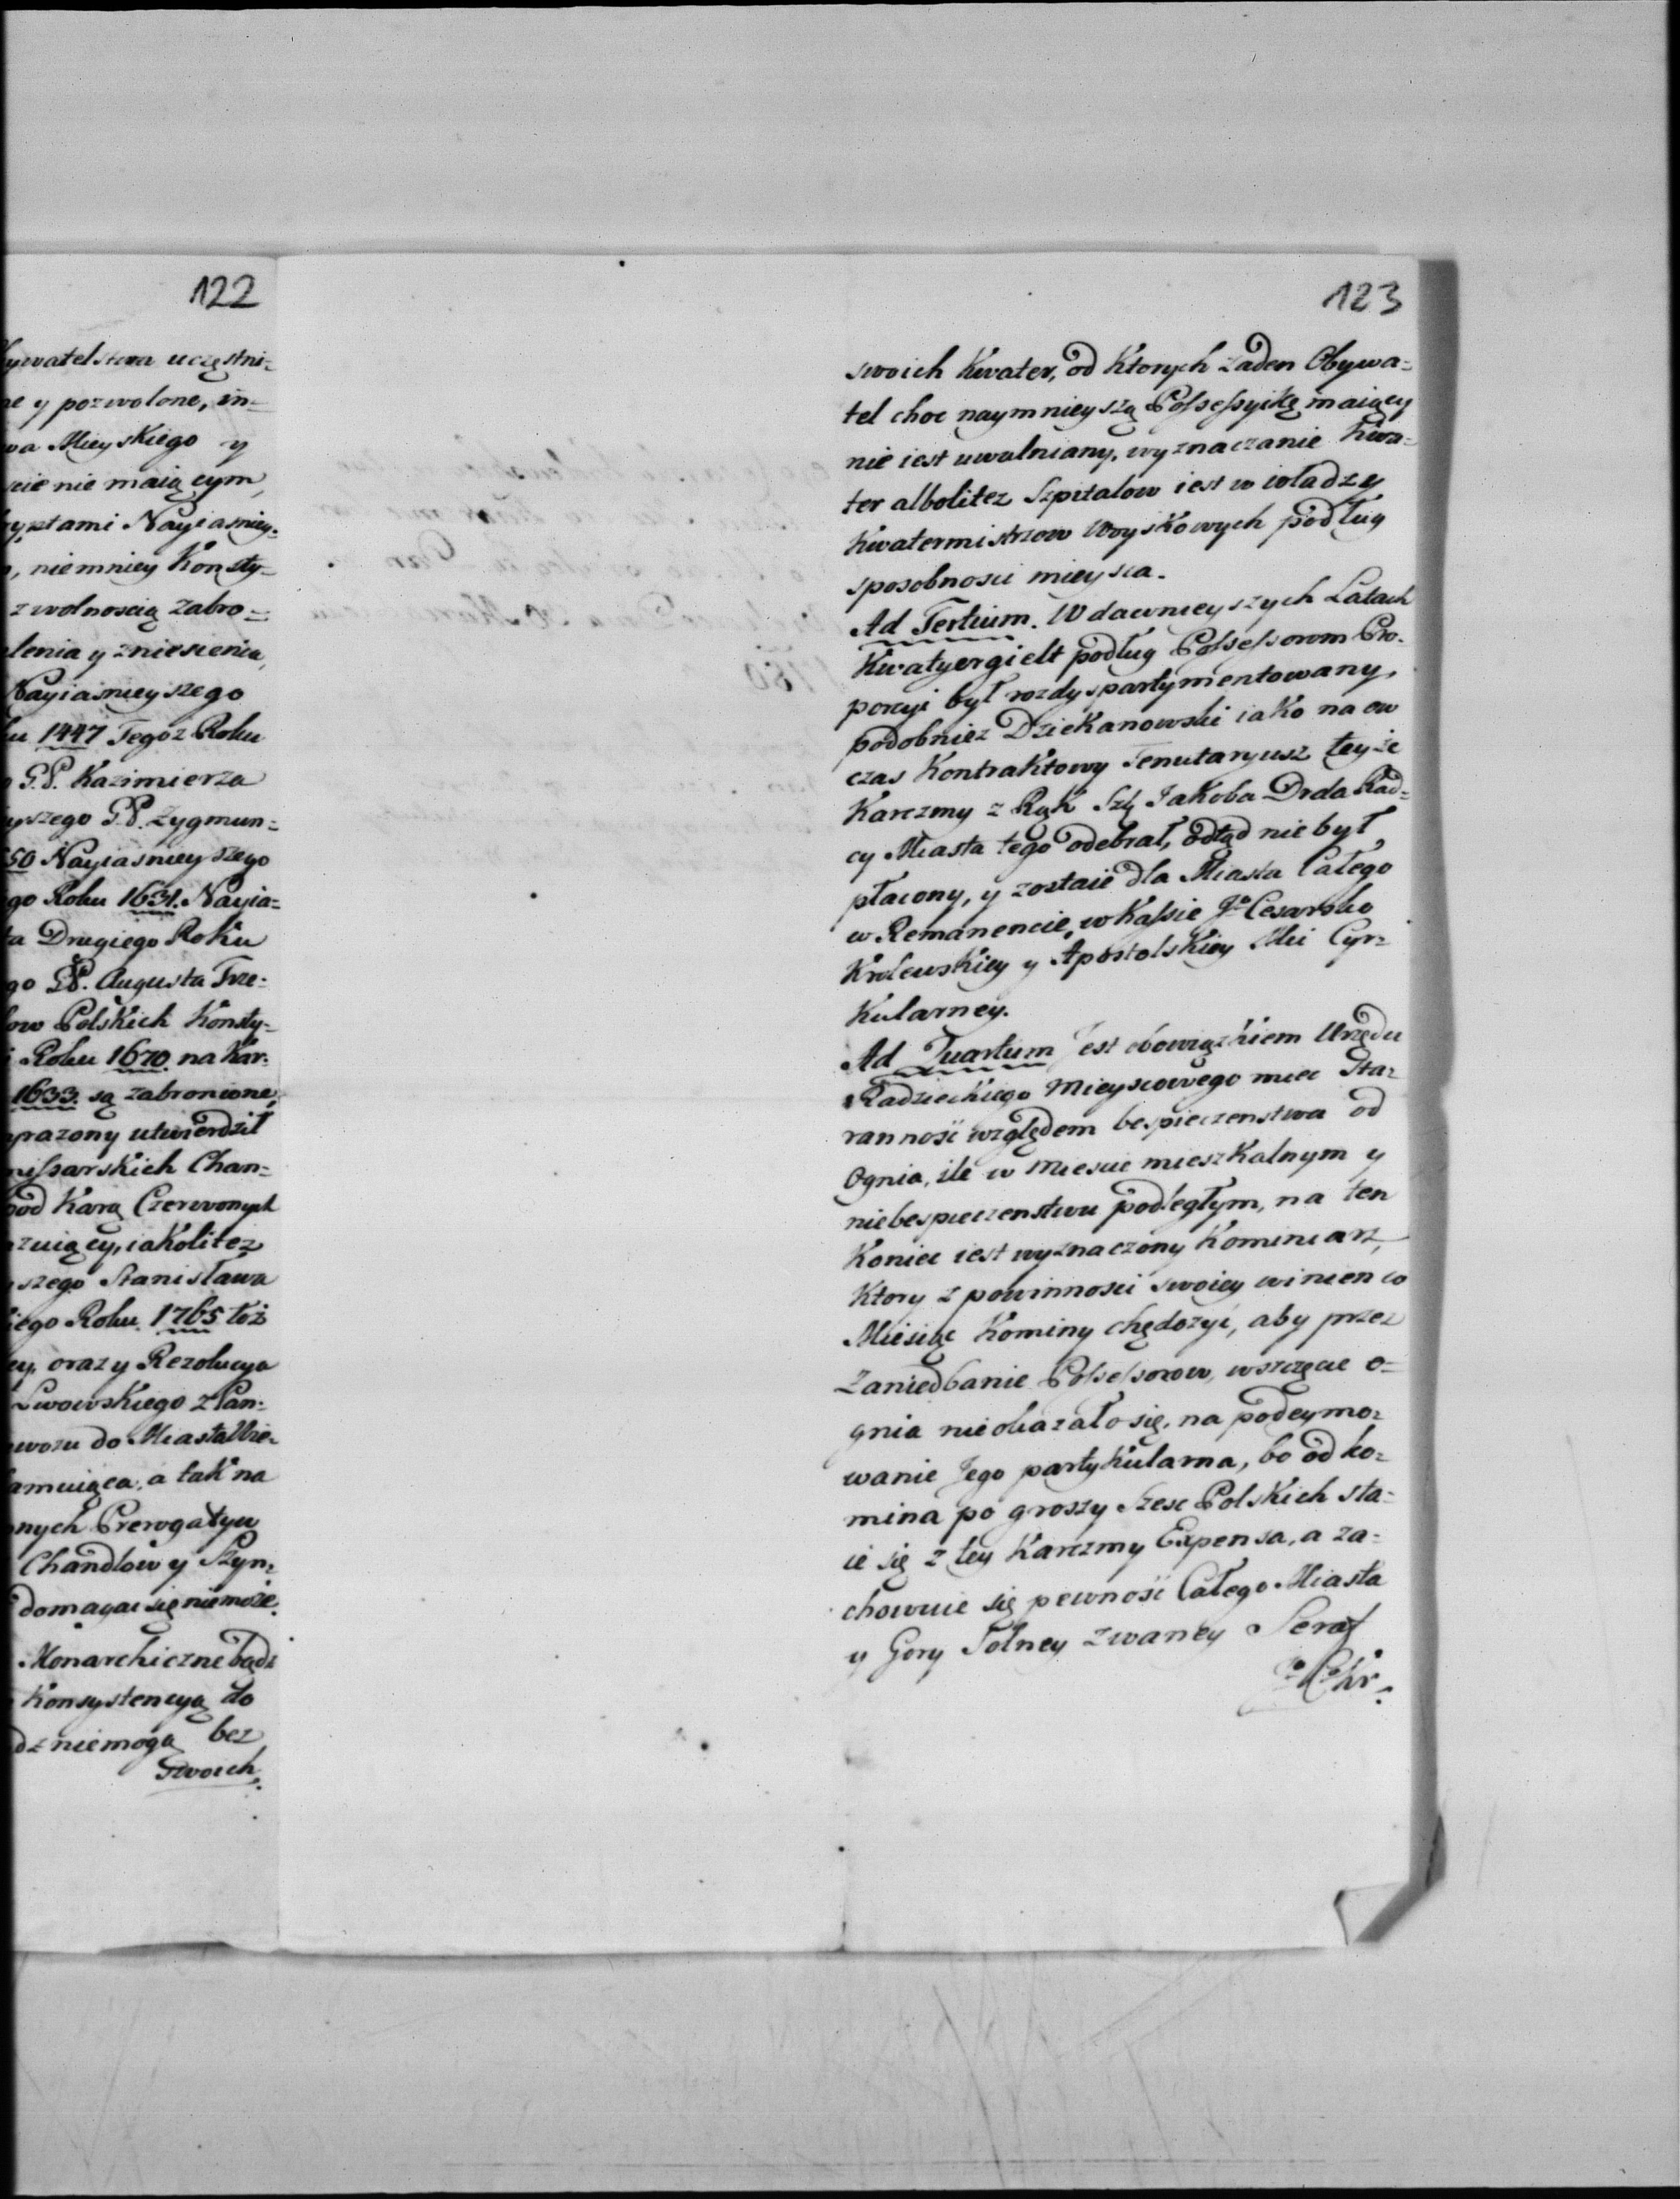 122
ywatelstwa uczęstni=
ne y pozwolone, in=
wa Mieyskiego y
scie nie maiącym,
yptami Nayiasniey=
, niemniey Konsty=
z wolnoscią zabro=
lenia y zniesienia,
Nayiasnieyszego
ku 1447 Tegoz Roku
o P.P. Kazimierza
yszego P.P. Zygmun=
50 Nayiasnieyszego
go Roku 1631. Nayia=
ta Drugiego Roku
go PP. Augusta Trze=
łow Polskich Konsty=
i Roku 1670. na Kar=
1633. są zabronione,
yrazony utwierdził
missarskich Chan=
pod Karą Czerwonych
azuiący, iakolitez
yszego Stanisława
iego Roku. 1765 toż
ey. oraz y Rezolucya
Lwowskiego z Pan=
wozu do Miasta Wie=
amuiąca, a tak na
onych Prerogatyw
Chandlow y Szyn=
domagac się niemoże.
Monarchiczne bądz
Konsystencyą do
dz niemogą bez
Swoich,
123
swoich Kwater, od Ktorych żaden Obywa=
tel choc naymnieyszą Possessyikę maiący
nie iest uwalniany, wyznaczanie Kwa=
ter albolitez Szpitalow iest w władzy
Kwatermistrzow Woyskowych podług
sposobnosci mieysca.
Ad Tertium. W dawnieyszych Latach
Kwatyergielt podług Possessorum Pro=
porcyi był rozdyspartymentowany,
podobniez Dziekanowski iako na ow
czas Kontraktowy Tenutaryusz teyże
Karczmy z Rąk Szl Jakoba Drda Rad=
cy Miasta tego odebrał, odtąd nie był
płacony, y zostaie dla Miasta Całego
w Remanencie, w Kassie Jo Cesarsko
Krolewskiey y Apostolskiey Mci Cyr=
Kularney.
Ad Quartum Jest obowiązkiem Urzędu
Radzieckiego Mieyscowego miec Sta=
rannosc względem bespieczenstwa od
Ognia, ile w Miescie mieszkalnym y
niebespieczenstwu podległym, na ten
Koniec iest wyznaczony Kominiarz,
Ktory z powinnosci swoiey winien co
Miesiąc Kominy chędozyć, aby przez
zaniedbanie Possessorow, wszczęcie o=
gnia nieokazało się, na podeymo=
wanie Jego partykularna, bo od ko=
mina po groszy Szesc Polskich sta=
ie się z tey Karczmy Expensa, a za=
chowuie się pewnosc Całego Miasta
y Gory Solney zwaney Seraf
Jo C Kr.